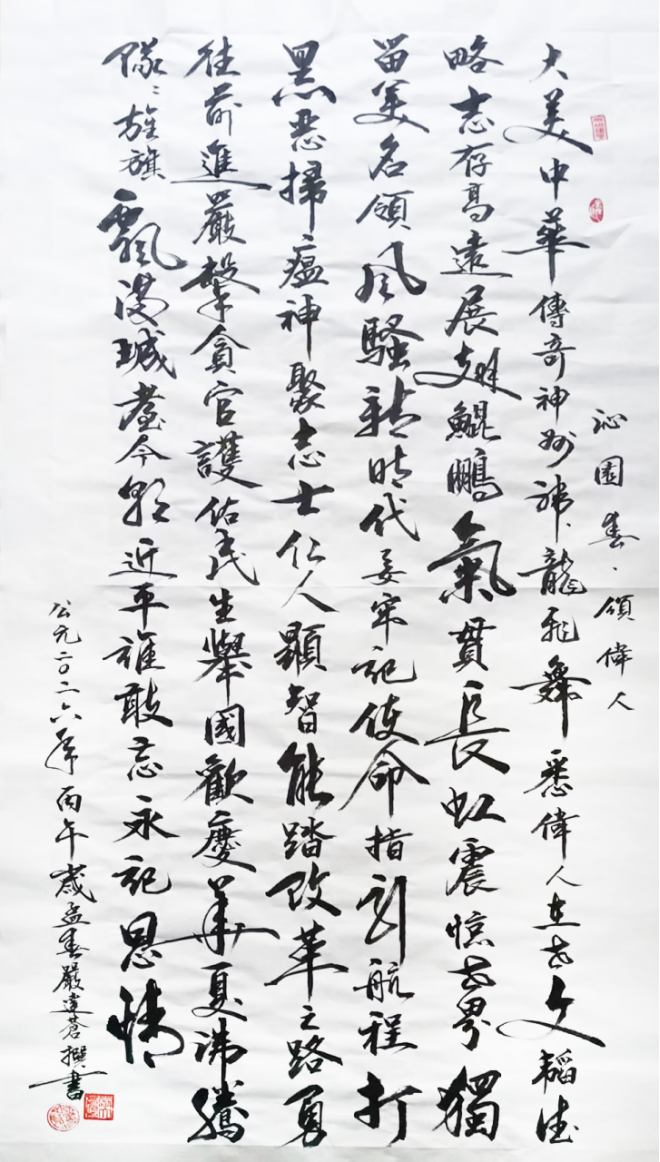 沁園春·頌偉人
大美中華傳奇神州祥龍飛舞悉偉人在世文韜武
略志存高遠展翅鯤鵬氣貫長虹震惊世界獨
留美名領風騷新時代要牢記使命指引航程打
黑惡掃瘟神聚志士仁人顯智能踏改革之路勇
往前進嚴擊貪官護佑民生舉國歡慶華夏沸騰
隊隊旌旗飄漫城臺今朝近平誰敢忘永記恩情
公元二〇二六年丙午歲孟春嚴達蒼撰書